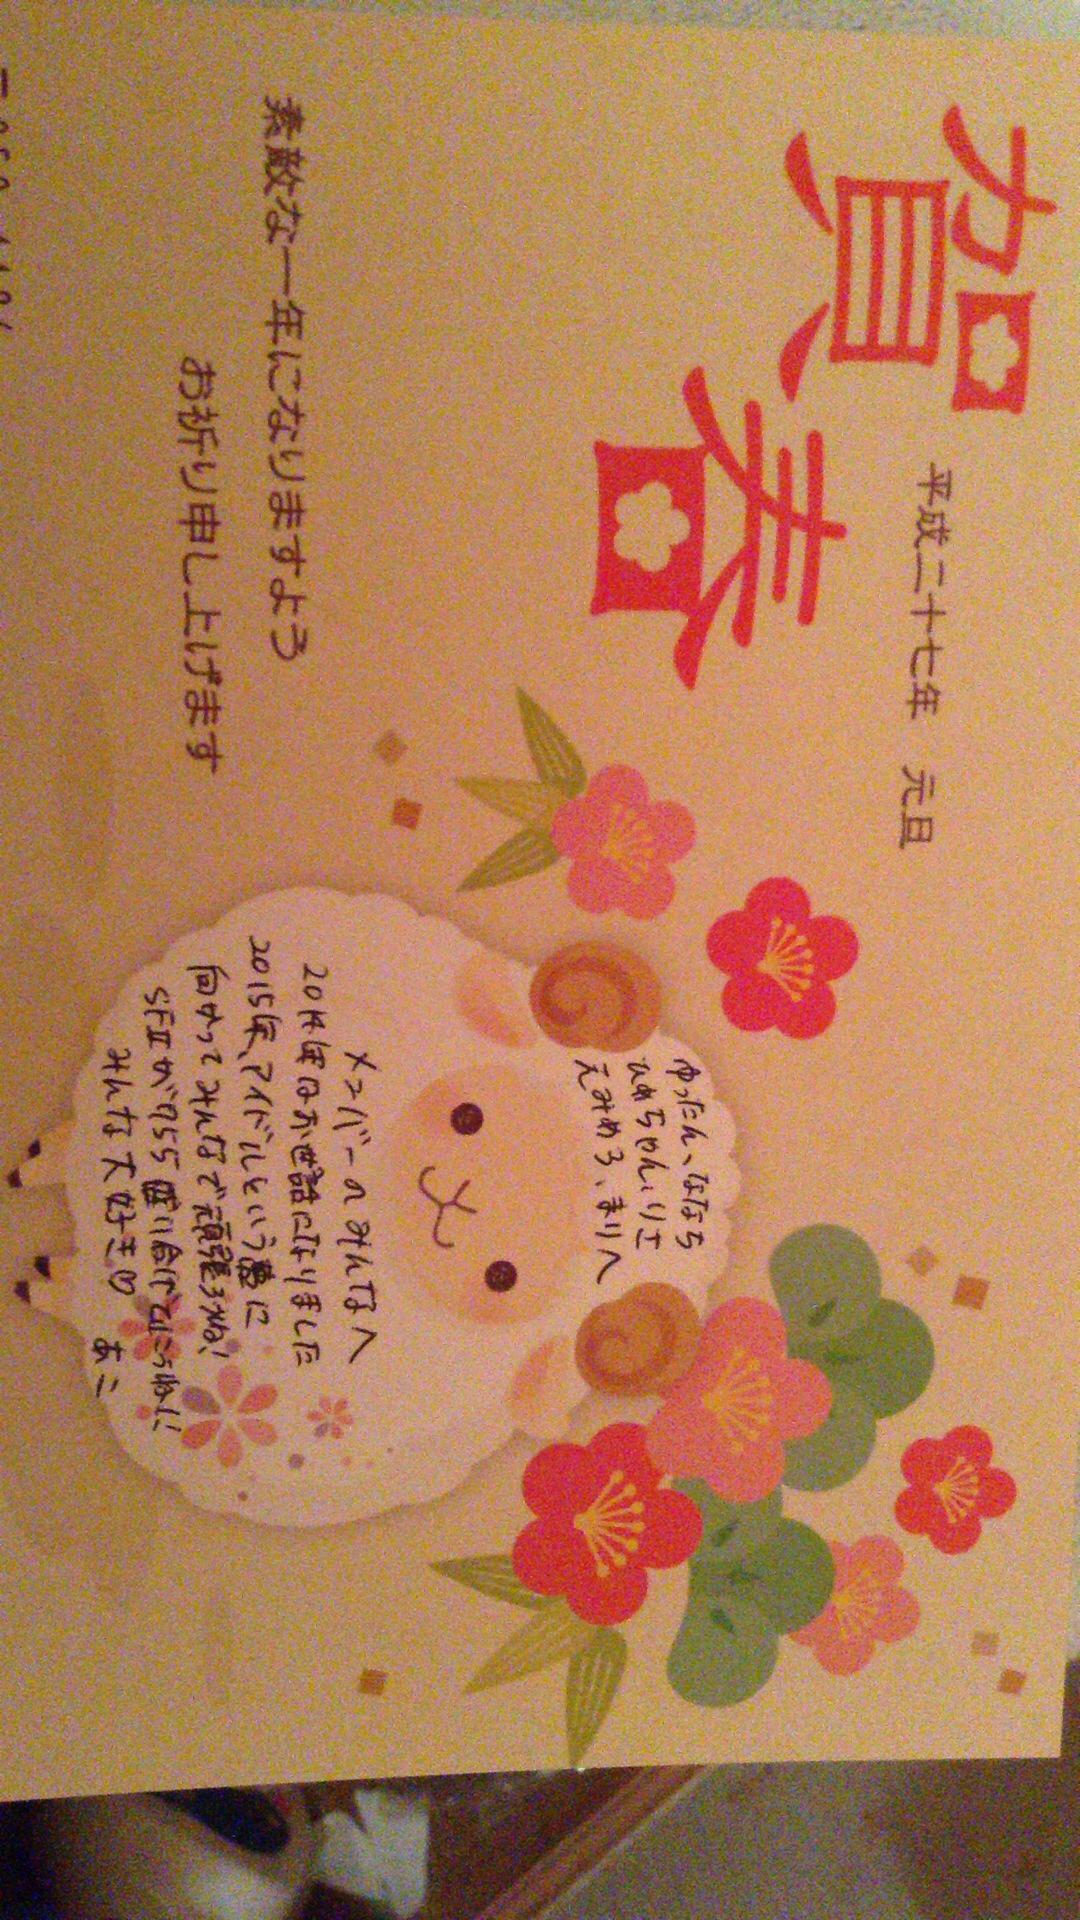 賀春
平成二十七年 元旦
素敵な一年になりますよう
お祈り申し上げます
ゆったん、ななち
ひめちゃん、りさ
えみめろ、まりへ
メンバーのみんなへ
2014年はお世話になりました
2015年、アイドルという夢に
向かってみんなで頑張ろうね!
みんな大好き
あこ